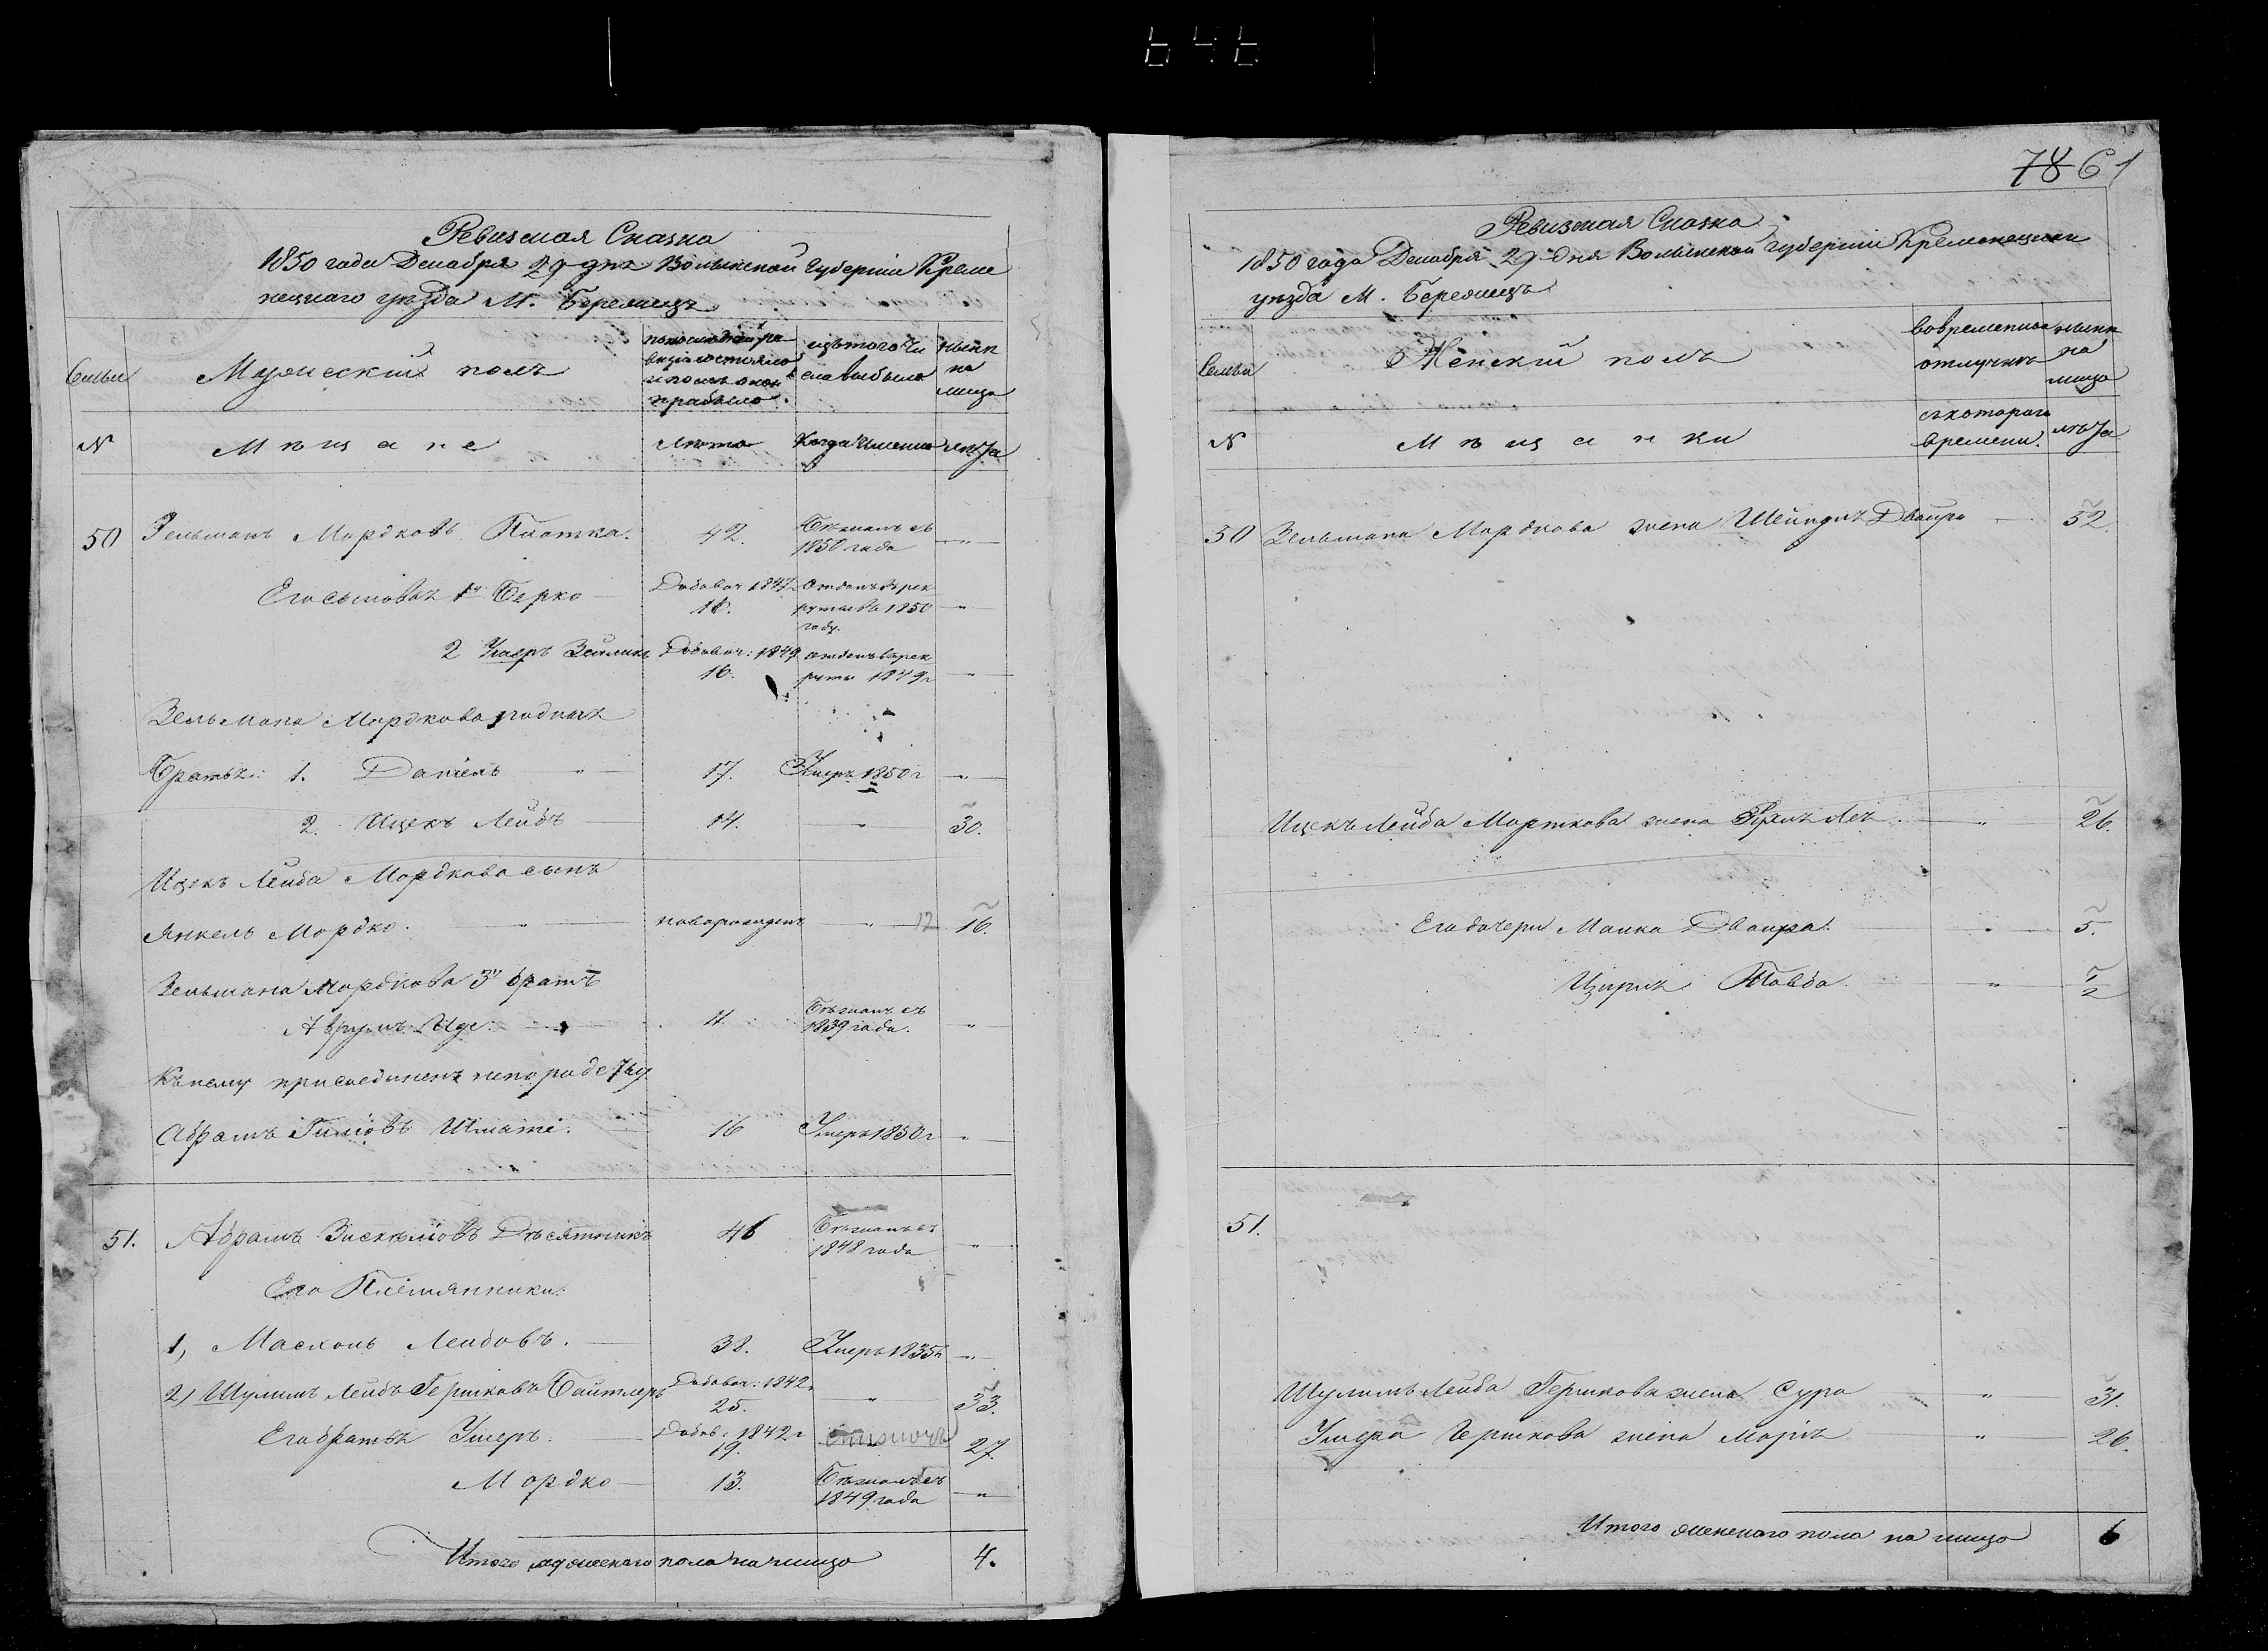 646
Ревизская Сказка
1850 года Декабря 29 дня Волынской Губерніи Креме
нецкаго уѣзда М. Бережецъ
Семьи
Мужескій полъ
по последней ре
визіи состояло
и послѣ оной
прибыло
изъ того чи
сла выбыло
нынѣ
на
лицо
N
Мѣщане
Лѣта
Когда именно
лѣта
50 Зельманъ Мордковъ 42. Бѣжалъ съ
1850 года
Его сыновья 1й Берко Добавоч 1847 Отданъ въ рек
18. руты въ 1850
году.
2 Ушеръ Зейликъ Добавоч: 1849 отданъ въ рек
16. руты 1849 г
Зельмана Мордкова родныя
Братья: 1. Даніель 17. Умеръ 1850 г
2. Ицекъ Лейбъ 14. 30.
Ицекъ Лейба Мордкова сынъ
Янкель Мордко. новорожден 12 16.
Зельмана Мордкова 3й братъ
Аврумъ Иде 11. Бѣжалъ съ
1839 года.
Къ нему присоединенъ не по родству
Абрамъ 16 Умеръ 1850 г
51. Абрамъ Десятникъ 46 Бѣжалъ съ
1848 года
Его Племянники:
1, Лейбовъ. 38. Умеръ 1835 г
2) Шулимъ Лейбъ Гершковъ Добавоч: 1842 г
25. 33.
Его братья Ушеръ. Добав: 1842 г
19. 27.
Мордко 13. Бѣжалъ съ
1849 года
Итого мужескаго пола на лицо 4.
7861
Ревизская Сказка
1850 года Декабря 29 дня Волынской Губерніи Кременецкаго
уѣзда М. Бережецъ
Семьи
Женскій полъ
во временной
отлучкѣ
нынѣ
на
лицо
N
Мѣщанки
съ котораго
времени.
лѣта
50 Зельмана Мордкова жена Шейндля Двойра 52
Ицекъ Лейба Морткова жена 26.
Его дочери Малка Двойра. 5.
Ципря Товба. 1/2
51.
Шулимъ Лейба Гершкова жена Сура 31.
Ушера Гершкова жена Марія 26.
Итого женскаго пола на лицо 6